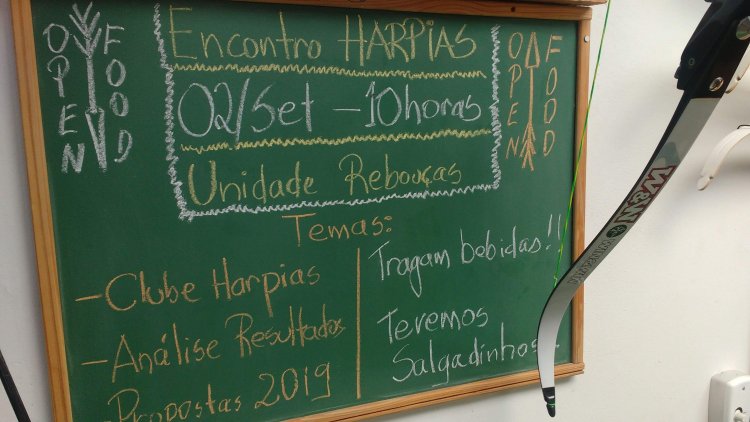 OPEN
FOOD
Encontro HARPIAS
02/Set - 10horas
Unidade Rebouças
OPEN
FOOD
Temas:
- Clube Harpias
- Análise Resultados
- Propostas 2019
Tragam bebidas!!
Teremos
Salgadinhos
W&W